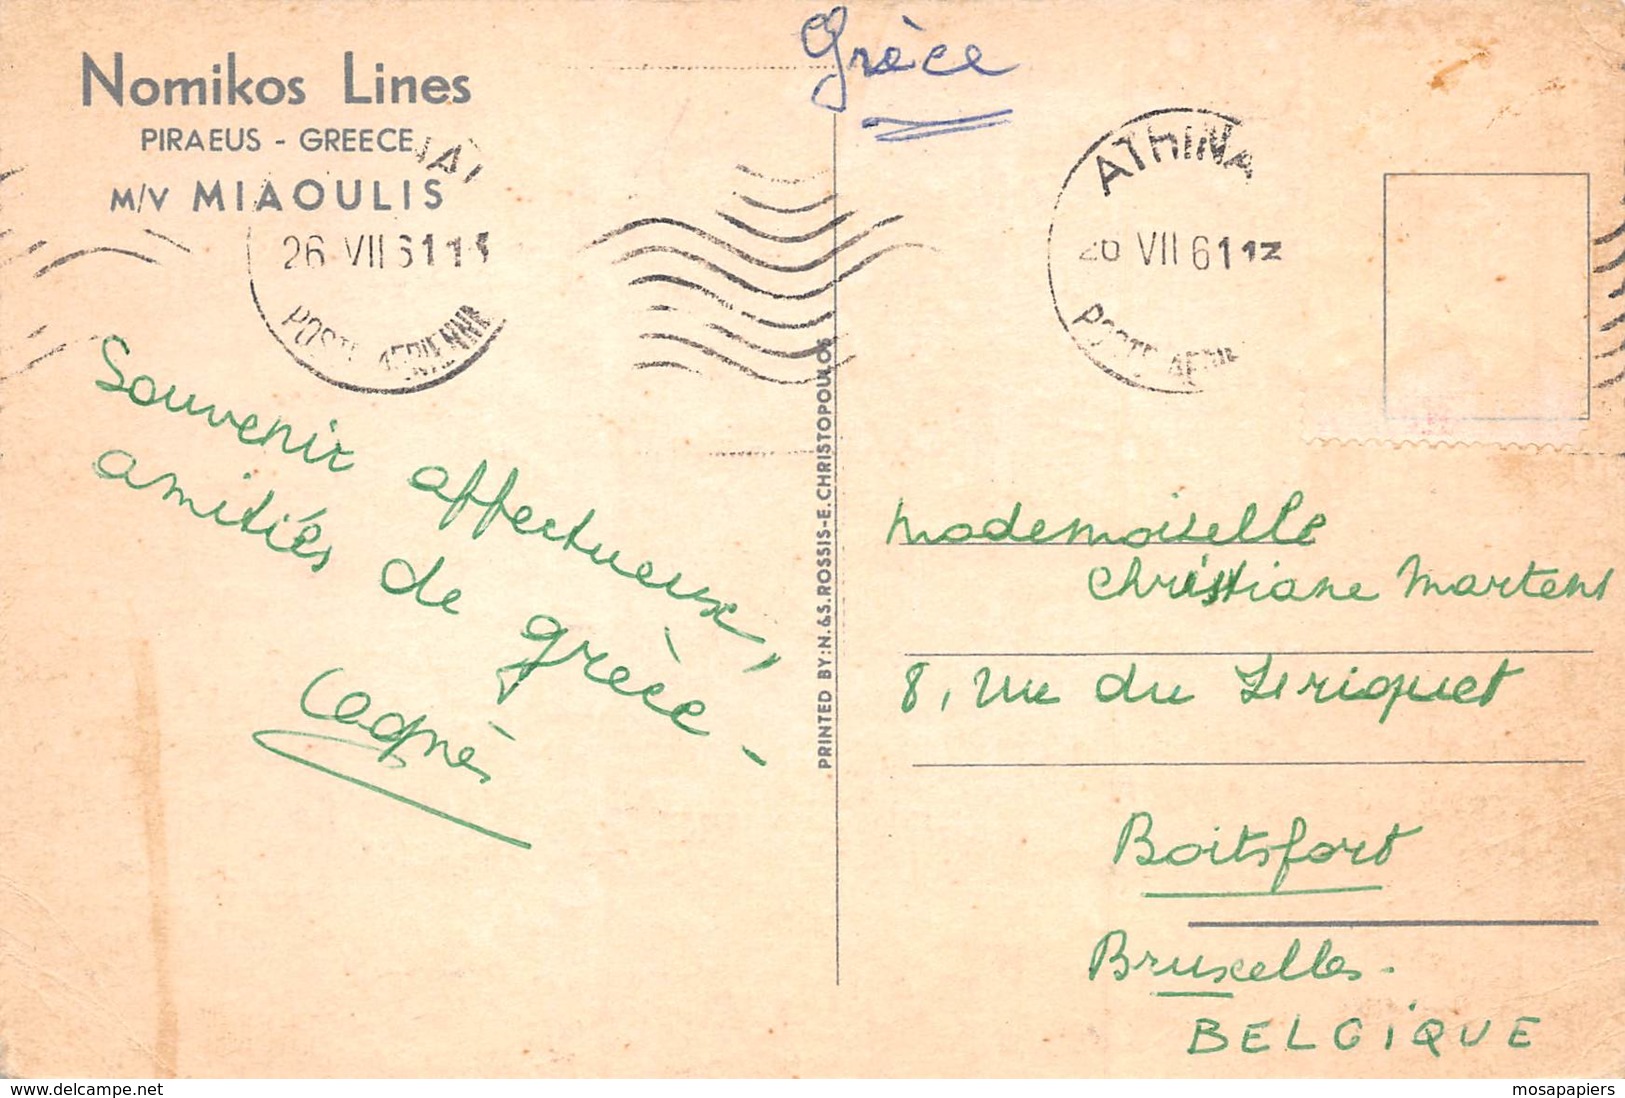 Nomikos Lines
PIRAEUS - GREECE
M/V MIAOULIS
26 VII 61
POSTE AERIENNE
Grèce
ATHINA
26 VII 61 12
POSTE AERIE
Souvenir affectueux,
amitiés de grèce -
Agnès
PRINTED BY: N.&S. ROSSIS-E. CHRISTOPOULOS
Mademoiselle
Christiane Martens
8, rue du
Boitsfort
Bruxelles.
BELGIQUE
www.delcampe.net
mosapapiers